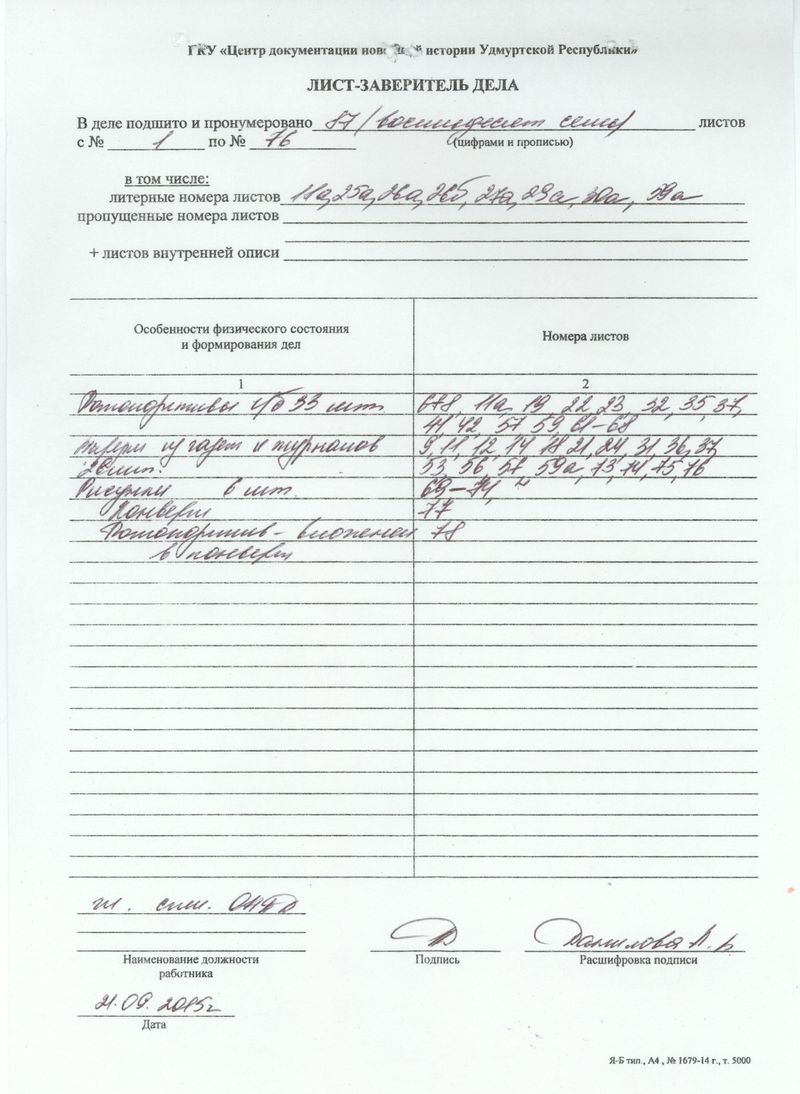 ГКУ «Центр документации новейшей истории Удмуртской Республики»
ЛИСТ-ЗАВЕРИТЕЛЬ ДЕЛА
В деле подшито и пронумеровано 87 (восемьдесят семь) листов
с № 1 по № 76 (цифрами и прописью)
в том числе:
литерные номера листов 11а, 25а, 26а, 26б, 27а, 29а, 30а, 59а
пропущенные номера листов
+ листов внутренней описи
Особенности физического состояния Номера листов
и формирования дел
1 2
Фотопозитивы ч/б 33 шт. 11а, 19, 22, 23, 32, 35, 37,
41, 42, 57, 59, 61-68
вырезки из газет и журналов 9, 11, 12, 14, 18, 21, 24, 31, 36, 37,
53, 56, 58, 59а, 73, 74, 75, 76
Рисунки 6 шт.
Конверт 77
Фотонегатив - вложен 78
в конверт
гл. спец.
Данилова Л.
Наименование должности Подпись Расшифровка подписи
работника
21.09.2015г
Дата
Я-Б тип., А4 , № 1679-14 г., т. 5000